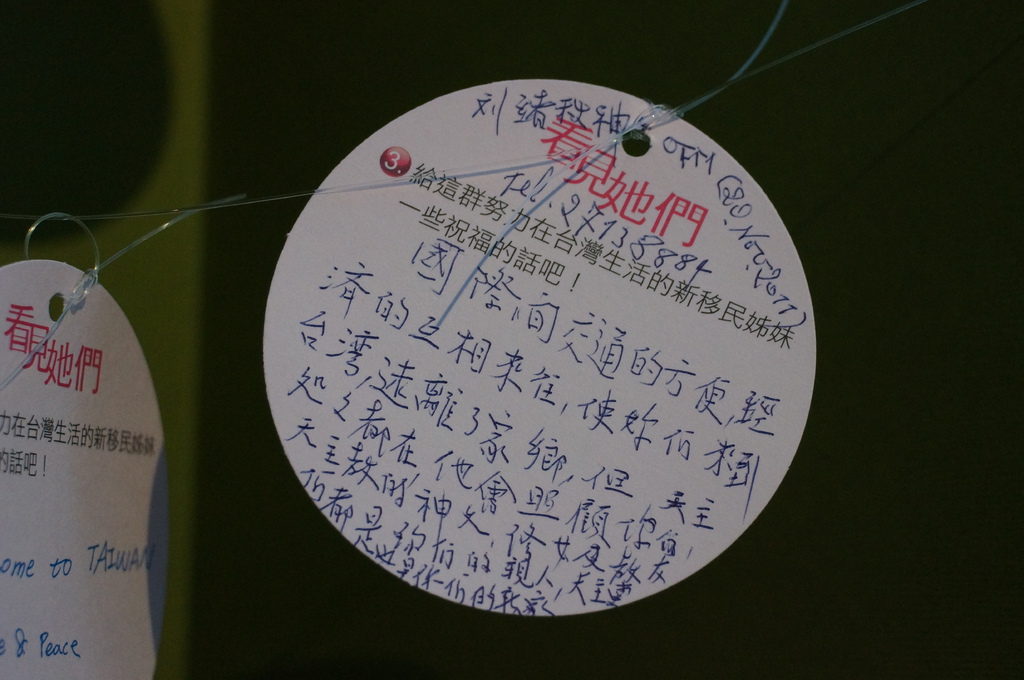 刘緒秋神 OFM (20. Nov. 2011)
看見她們
Tel. 27138884
3. 給這群努力在台灣生活的新移民姊妹
一些祝福的話吧！
國際間交通的方便,經
濟的互相來往,使妳们來到
台湾,遠離了家鄉,但天主
处处都在他會照顧你们,
天主教的神父,修女及教友
们都是妳们的親人,天主
教是你们的新家
看見她們
力在台灣生活的新移民姊妹
的話吧！
ome to TAIWAN
e & Peace